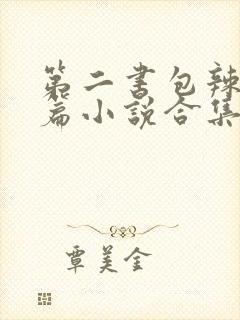 第二书包辣
篇小说合集
覃美金